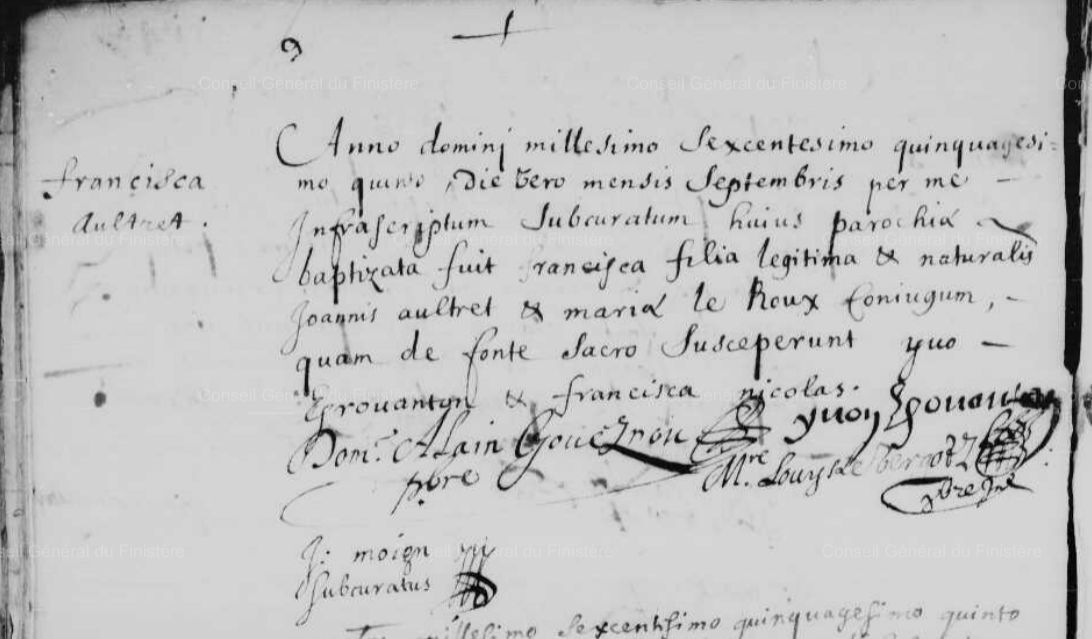 Francisca
Aultret.
Anno dominj millesimo Sexcentesimo quinquagesi=
mo quinto, Die Vero mensis Septembris per me
Infrascriptum Subcuratum huius parochiæ
baptizata fuit francisca filia legitima & naturalis
Joannis aultret & mariæ le Roux Coniugum,
quam de fonte Sacro Susceperunt yuo
& francisca nicolas.
Dom. Alain Goueznou
pbre
yuon
Mre Louys Le
pbre
J: moign
Subcuratus
millesimo Sexcentesimo quinquagesimo quinto
Conseil Général du Finistère